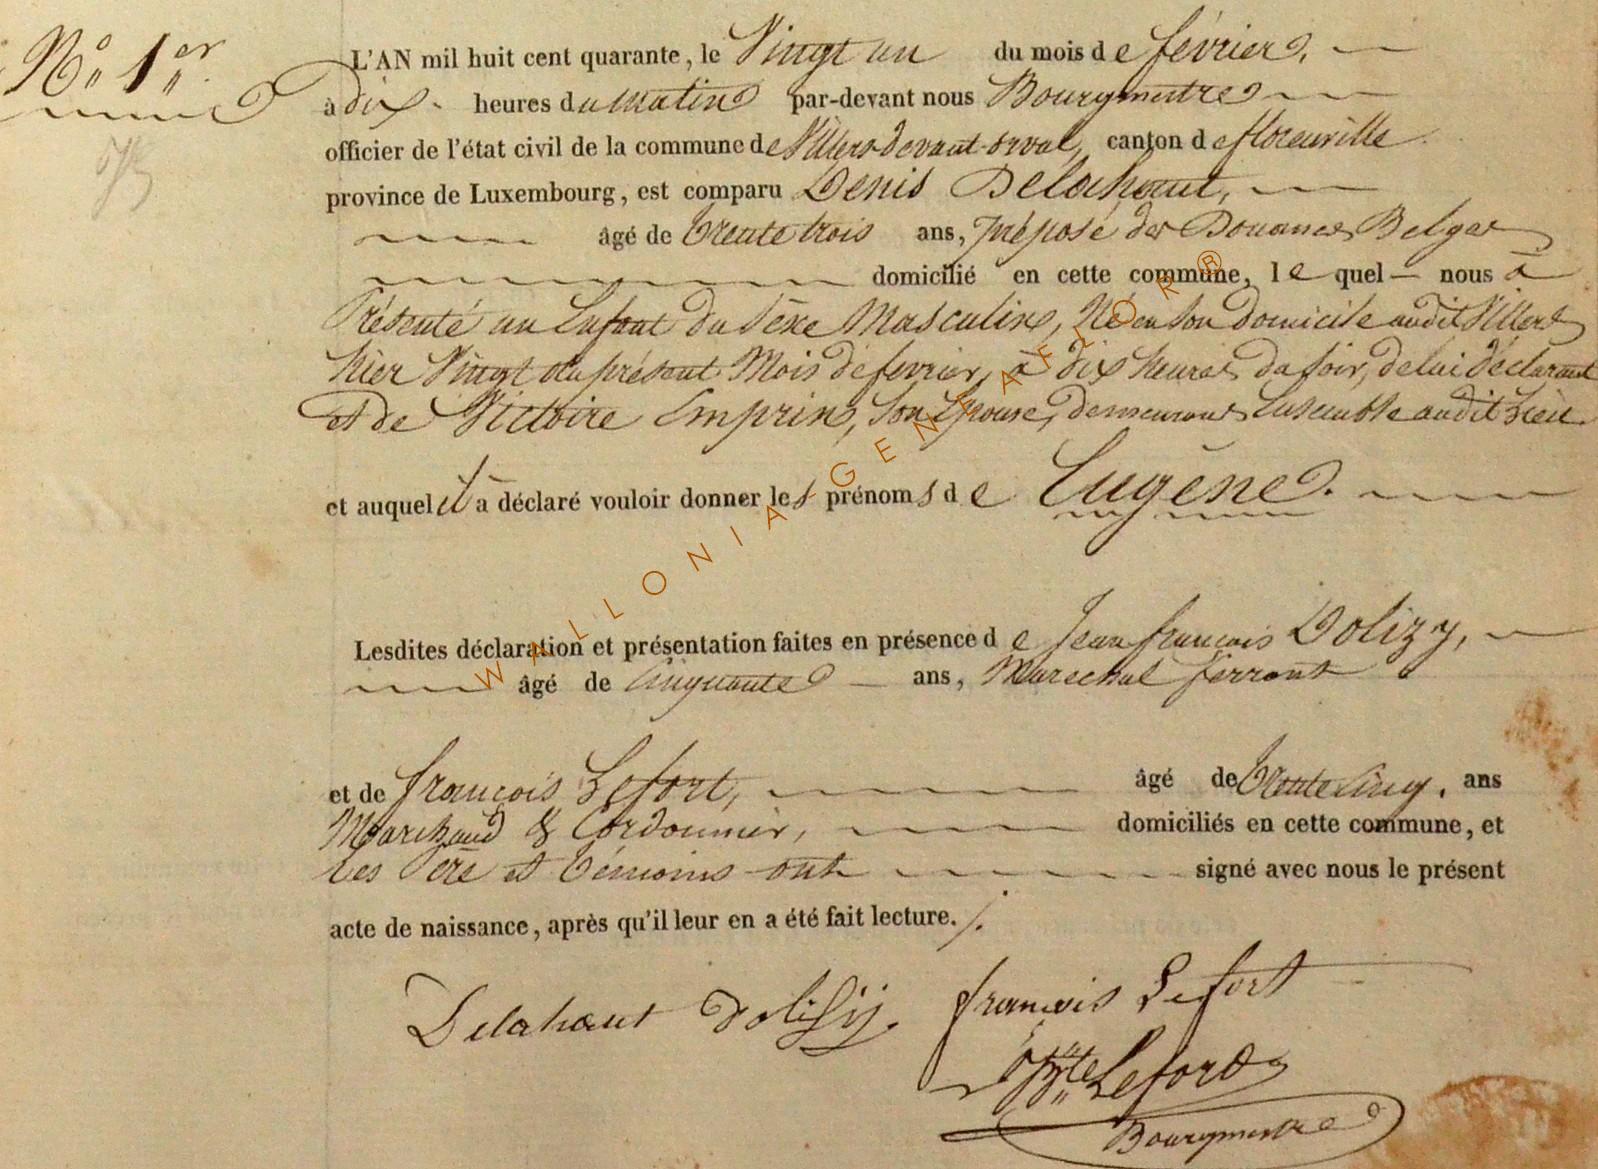 N° 1er
L'AN mil huit cent quarante, le Vingt un du mois de février,
à dix heures du matin par-devant nous Bourgmestre
officier de l'état civil de la commune de Villers-devant-orval, canton de florenville
province de Luxembourg, est comparu Denis Delahaut,
âgé de trente trois ans, préposé des Douanes Belges
domicilié en cette commune, le quel nous à
Présenté un Enfant du Sèxe Masculin, Né en son domicile audit Villers
hier Vingt du présent Mois de fevrier, à dix heures du soir, de lui déclarant
et de Victoire Emprin, son Epouse, demeurant Ensemble audit Lieu
et auquel il à déclaré vouloir donner les prénoms de Eugène.
Lesdites déclaration et présentation faites en présence de Jean françois Dolizy,
âgé de Cinquante ans, Marechal ferrant
et de françois Lefort, âgé de trente Cinq, ans
Marchand & Cordonnier, domiciliés en cette commune, et
les Père et témoins ont signé avec nous le présent
acte de naissance, après qu'il leur en a été fait lecture.
Delahaut Dolisy françois Lefort
Lefort
Bourgmestre
WALLONIA-GENEAFLOR ®